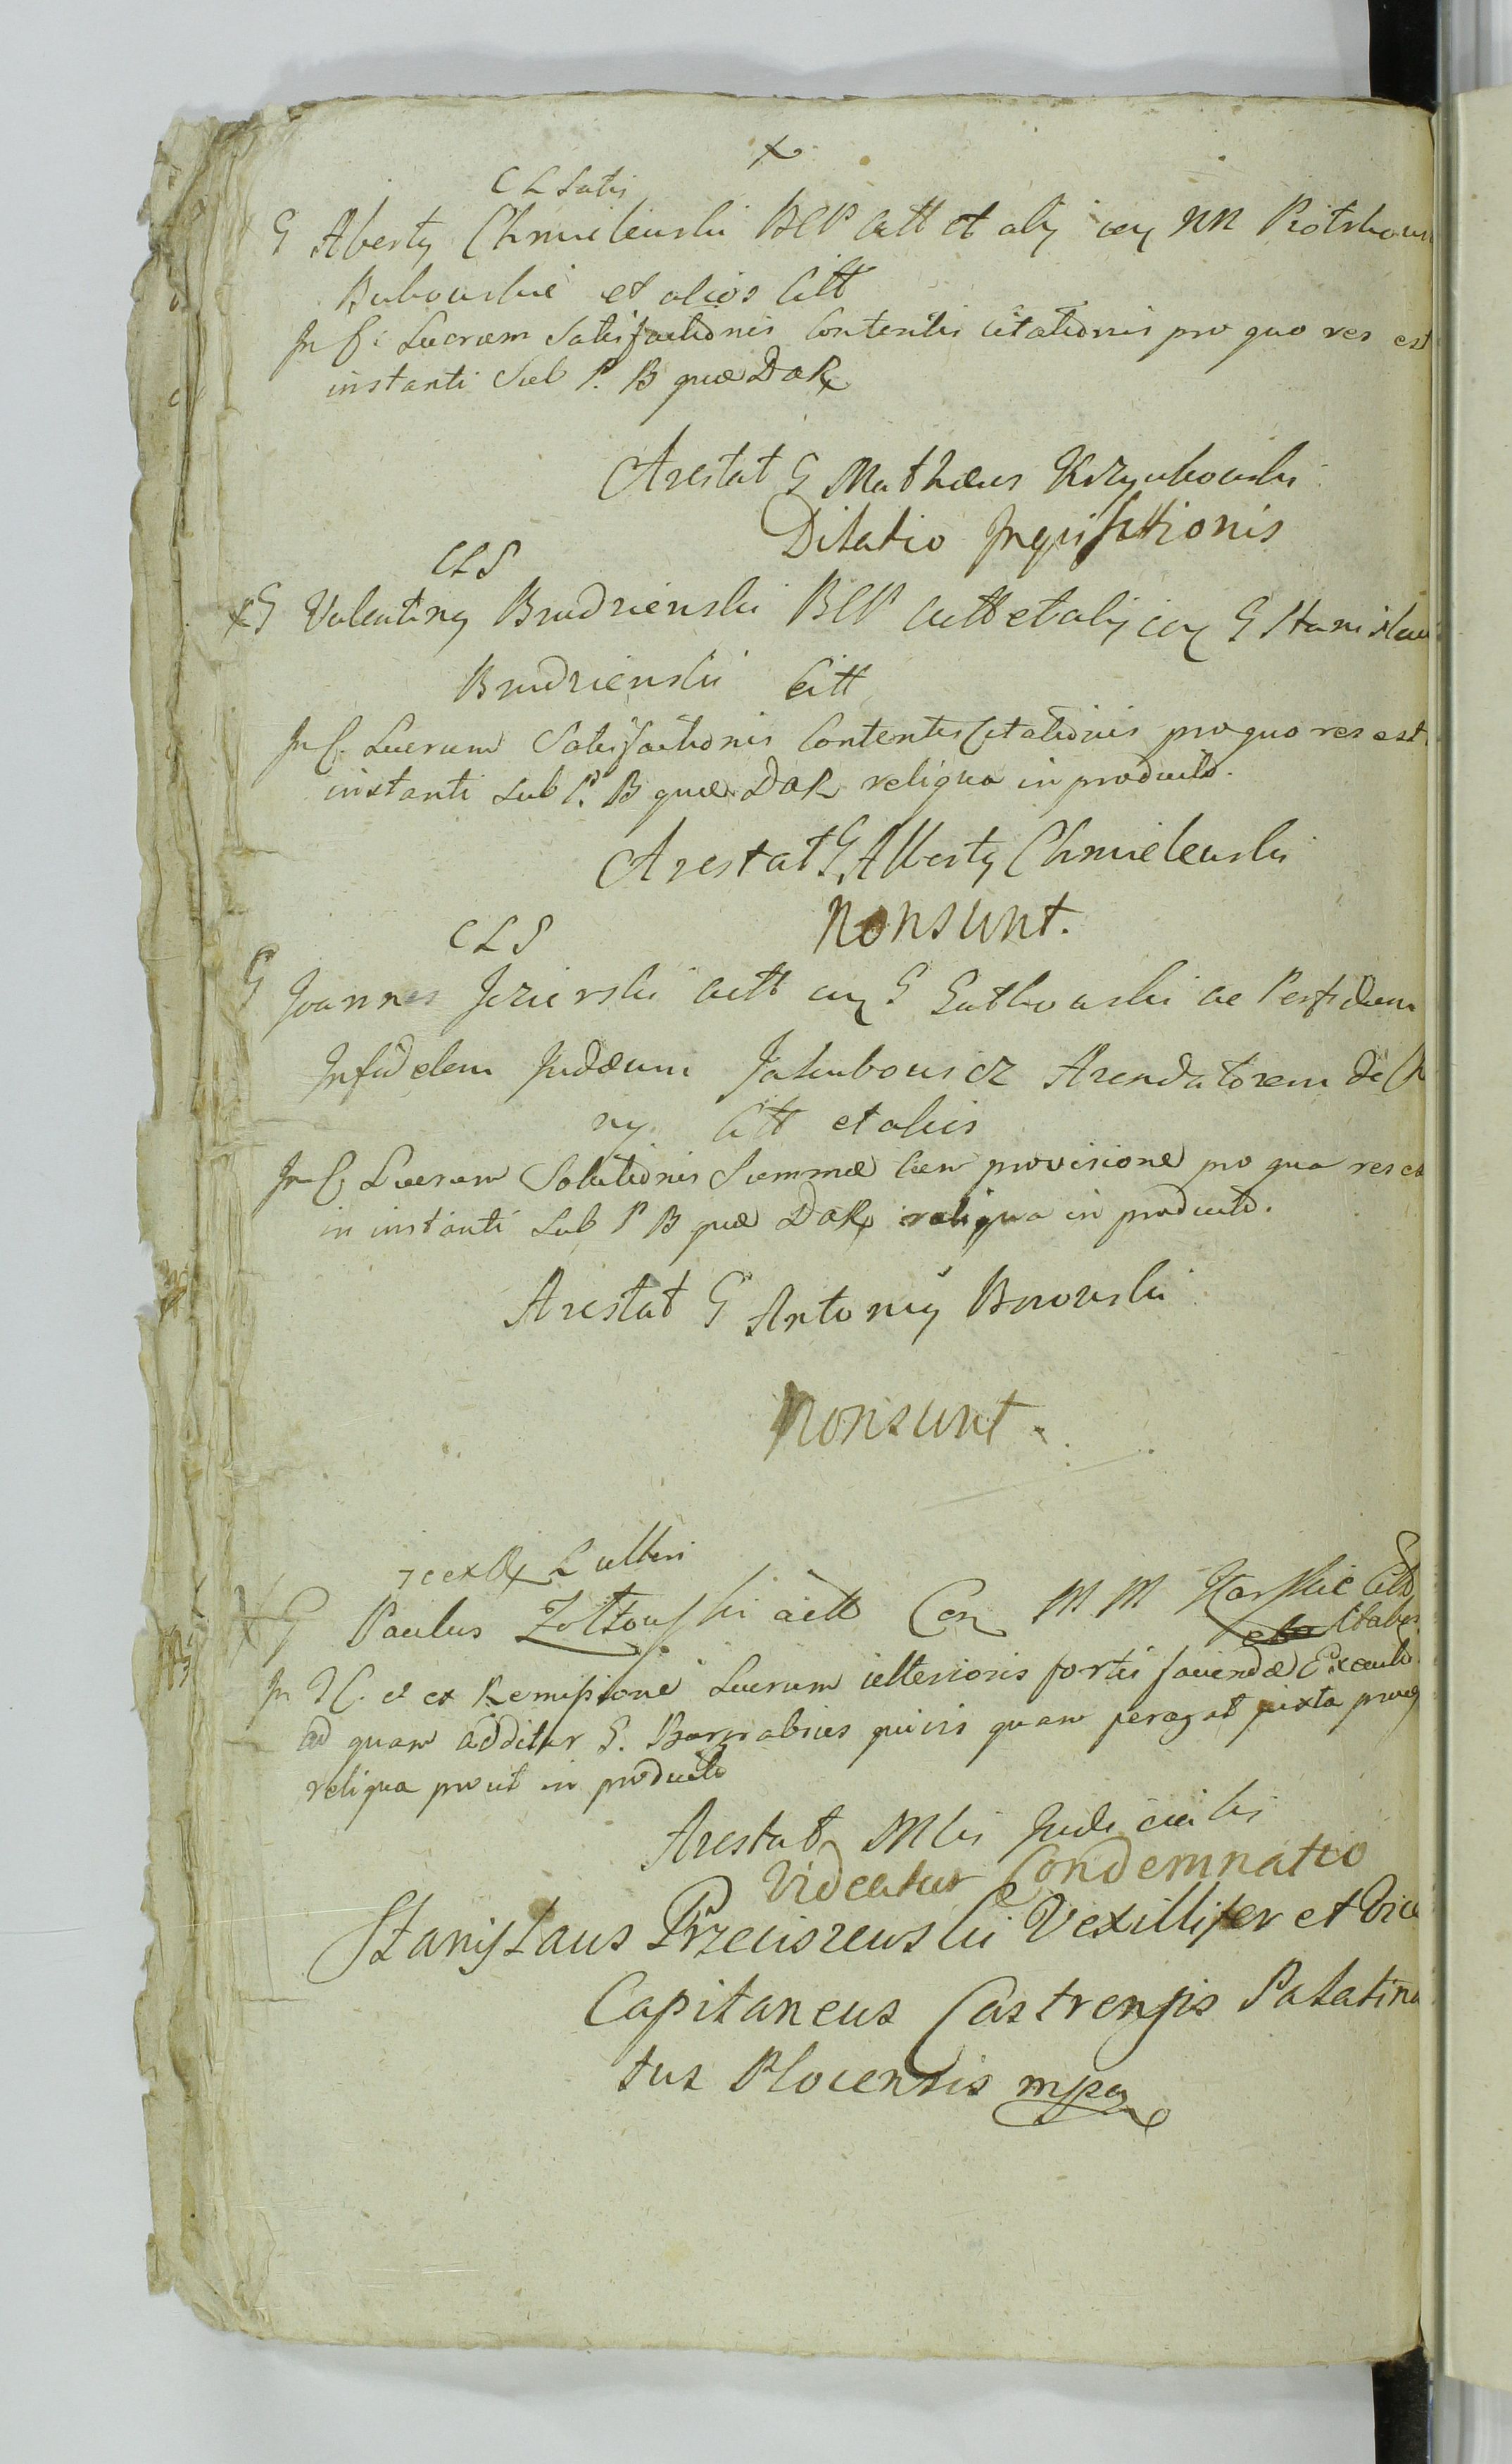 x
C L Satis
G Alberty Chmielewski BCP Actt et alij cuy NN Piotrkows
Bubowskie et alios Citt
In C: Lucrum Satisfactionis Contentis Citationis pro quo res est
instanti Sub P. B quæ DaR
Arestat G Mathæus Krzyukowski
Dilatio Inquisittionis
CLS
x G Valentiny Brudzienski BCP Actt et alij cuy G Stanislau
Brudzienski Citt
In C. Lucrum Satisfactionis Contentis Citationis pro quo res est
instanti sub P. B quæ DaR reliqua in producto.
Arestat G Alberty Chmielewski
Nonsunt.
CLS
G Joannes Jezierski actt cuy G Gutkowski ac Perfidum
Infidelem Judæum Jakubowicz Arendatorem de
ny. Citt et aliis
In C Lucrum Solutionis Summæ cum provisione pro qua res es
in instanti Sub P B quæ DaR reliqua in producto.
Arestat G Antoniy Borowski
Nonsunt.
L ulteri
x G Paulus Zołtowski actt Con M M Karskie Citt
In C. et ex Remissione Lucrum ulterioris fortis faciendæ Executio
ad quam additur G. Barnabius quivis quam peragat juxta
reliqua prout in producto
Arestat Mlis Judicialis
Videatur Condemnatio
Stanislaus Przeciszewski Vexillifer et Vice
Capitaneus Castrensis Palatina
tus Plocensis mpa